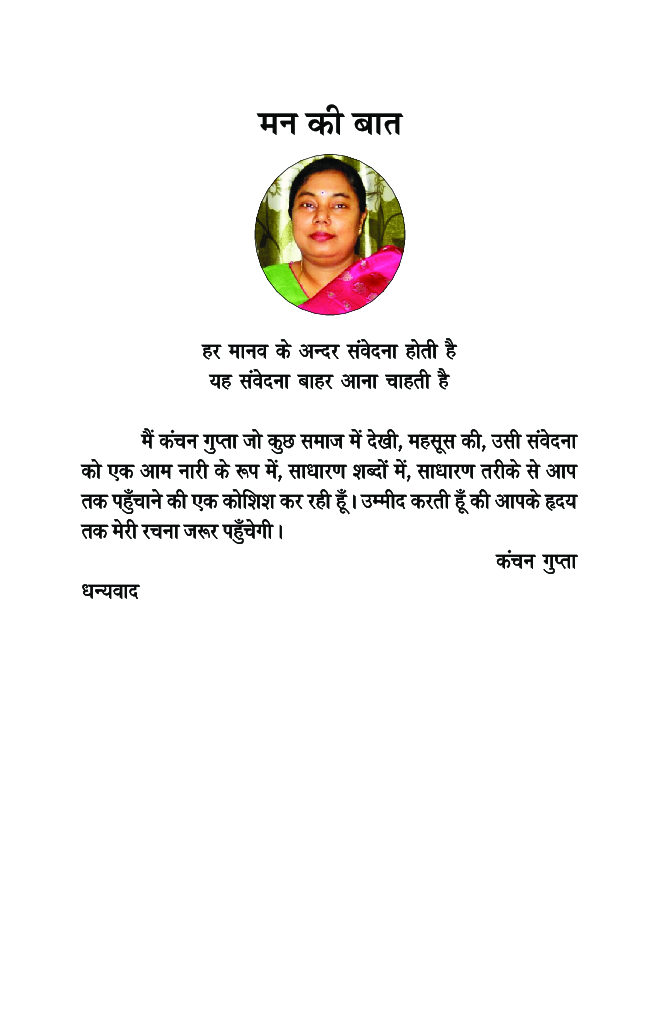 मन की बात
हर मानव के अन्दर संवेदना होती है
यह संवेदना बाहर आना चाहती है
मैं कंचन गुप्ता जो कुछ समाज में देखी, महसूस की, उसी संवेदना
को एक आम नारी के रूप में, साधारण शब्दों में, साधारण तरीके से आप
तक पहुँचाने की एक कोशिश कर रही हूँ। उम्मीद करती हूँ की आपके हृदय
तक मेरी रचना जरूर पहुँचेगी।
कंचन गुप्ता
धन्यवाद